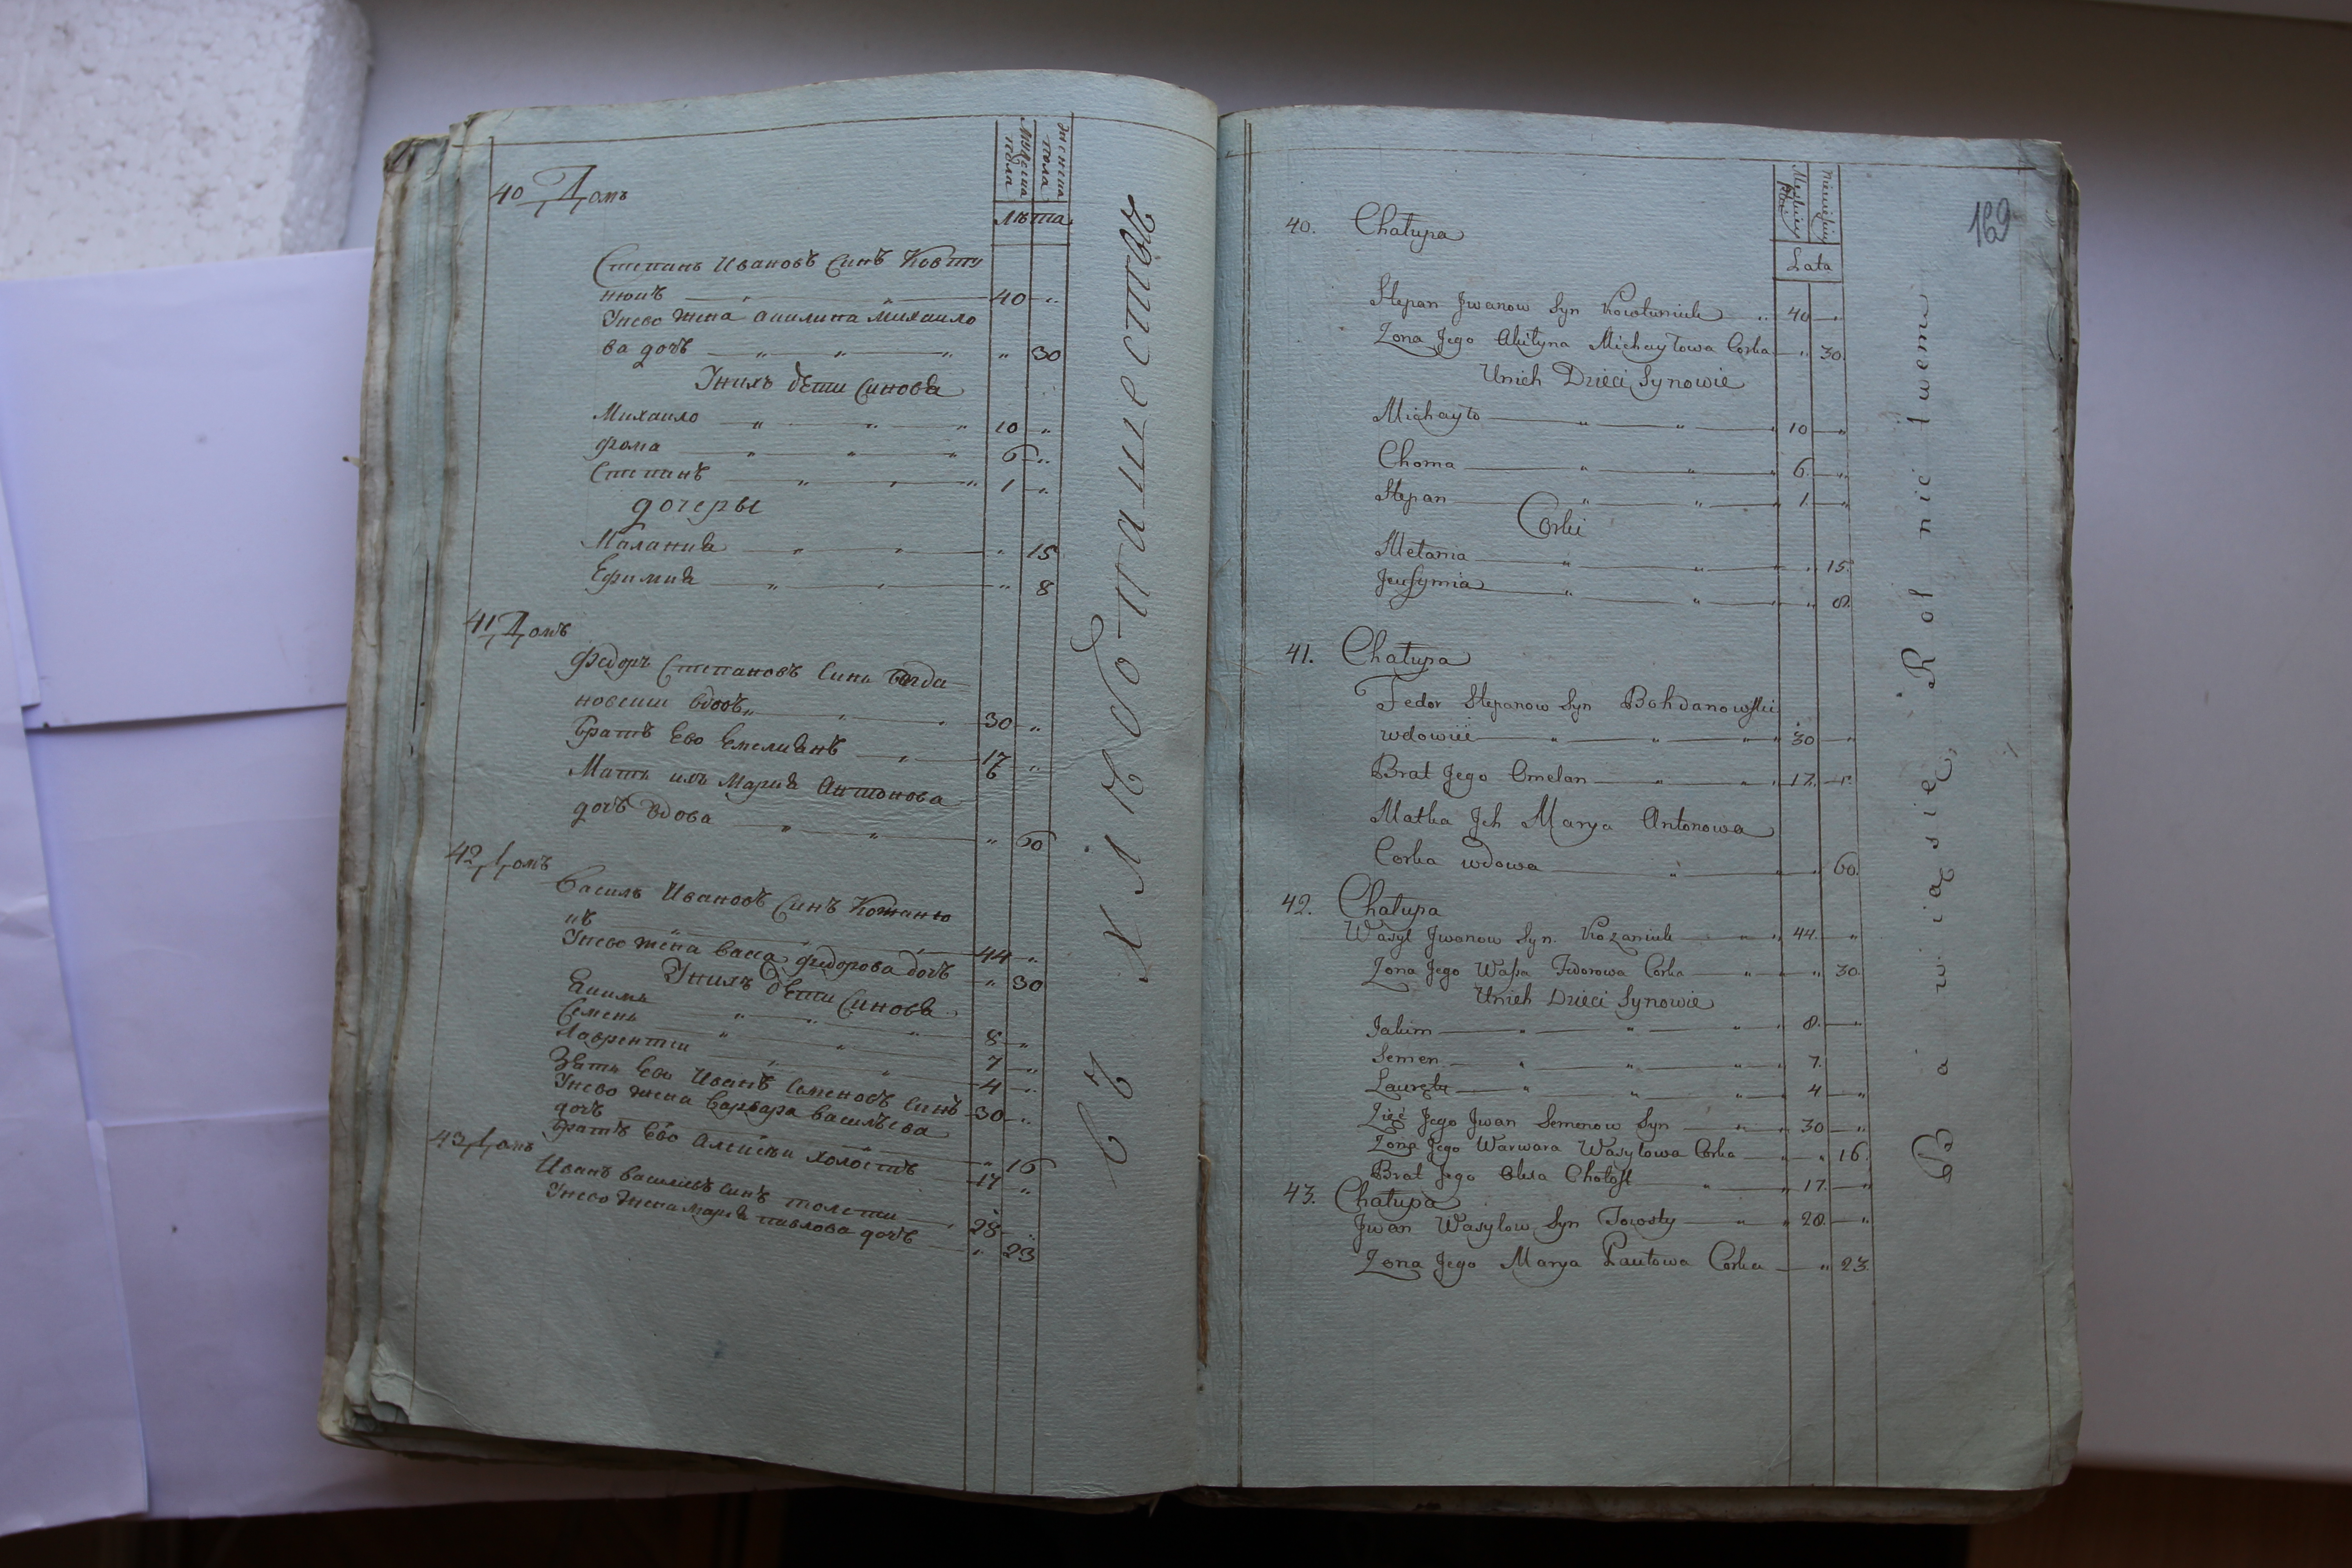 Мужеска пола
Женска пола
лѣта
40 Домъ
Степанъ Ивановъ синъ Ковту
нюкъ 40 "
Унево жена Акилина Михаило
ва дочъ " 30
Унихъ дѣти синовя
Михаило 10 "
Фома 6 "
Степанъ 1 "
дочеры
Малания " 15
Ефимия " 8
41 Домъ
Федоръ Степановъ синъ Богда
новски вдовъ 30 "
Братъ Ево Емелиянъ 17 "
Мать ихъ Мария Антонова
дочъ вдова " 60
42 Домъ
Василь Ивановъ синъ Кожаню
къ 44 "
Унево жена Васса Федорова дочъ " 30
Унихъ дѣти синовя
Якимъ 8 "
Семенъ 7 "
Лаврентеи 4 "
Зять Ево Иванъ Семеновъ синъ 30 "
Унево жена Варвара Василъева
дочъ " 16
Братъ Ево Алексѣи холостъ 17 "
43 Домъ
Иванъ Василевъ синъ толсти 28 "
Унево жена Мария павлова дочъ " 23
въ хлѣбопашествѣ
169
Męskiey płci
Niewieściey
Lata
40. Chałupa
Stepan Jwanow Syn Kowtuniuk 40 "
Zona Jego Akilyna Michayłowa Corka " 30.
Unich Dzieci Synowie
Michayło 10 "
Choma 6. "
Stepan 1. "
Corki
Mełania " 15.
Jeufymia " 8.
41. Chałupa
Fedor Stepanow Syn Bohdanowski
wdowiec 30 "
Brat Jego Omelan 17. "
Matka Jch Marya Antonowa
Corka wdowa " 60.
42. Chałupa
Wasyl Jwanow Syn Kozaniuk 44. "
Zona Jego Wassa Fedorowa Corka " 30.
Unich Dzieci Synowie
Jakim 8. "
Semen 7.
4 "
Zięć Jego Jwan Semenow Syn 30 "
Zona Jego Warwara Wasylowa Corka " 16.
Brat Jego Olexa Chołost 17. "
43. Chałupa
Jwan Wasylow Syn Towsty 28. "
Zona Jego Marya Pawłowa Corka " 23.
Bawią się Rolnictwem